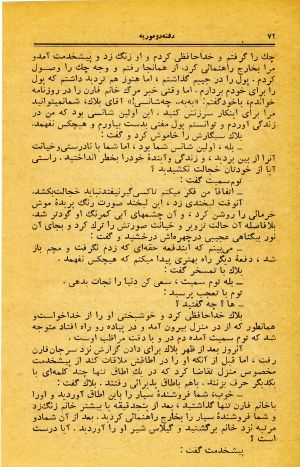 ۷۲ دفنه دوموریه
چك را گرفتم و خداحافظی كردم و او زنگ زد و پیشخدمت آمدو
مرا بخارج راهنمائی كرد، از همانجا رفتم و وجه چك را وصول
كردم . پول را در جیبم گذاشتم، اما هنوز هم تردید داشتم كه پول
را برای خودم بردارم . اما وقتی خبر مرگ خانم فارن را در روزنامه
خواندم، باخودگفتم: «به‌به، چه‌شانسی!» آقای بلاك، شمانمیتوانید
مرا برای اینكار سرزنش كنید . این اولین شانسی بود كه من در
زندگی آوردم و توانستم پول مفتی بدست بیاورم و هیچكس نفهمد.
بلاك سیگارش را خاموش كرد و گفت :
ـ بله ، اولین شانس شما بود ، اما شما با نادرستی وخیانت
آنرا از بین بردید ، و زندگی وآیندهٔ خودرا بخطر انداختید . راستی
آیا از خودتان خجالت نكشیدید ؟
توم سمیت گفت :
ـ اتفاقاً من فكر میكنم تاكسی گیرنیفتدنباید خجالت‌بكشد.
آنوقت لبخندی زد ، این لبخند صورت رنگ پریدهٔ موش
خرمائی را روشن كرد ، و آن چشمهای آبی كمرنگ او گودتر شد.
بلافاصله آن حالت تزویر و خیانت صورتش را ترك كرد و بجای آن
نور بیگناهی عجیبی درچهره‌اش درخشید و گفت :
ـ می‌بینم كه ایندفعه حقه‌ای كه زدم نگرفت و مچم باز
شد ، دفعه دیگر راه بهتری پیدا میكنم كه هیچكس نفهمد.
بلاك با تمسخر گفت :
ـ بله توم سمیت ، سعی كن دنیا را نجات بدهی .
توم با تعجب پرسید :
ـ ها ؟ چه گفتید ؟
بلاك خداحافظی كرد و خوشبختی او را از خداخواست‌و
همانطور كه از در منزل بیرون آمد و در پیاده رو راه افتاد متوجه
شد كه توم سمیت آمده دم در و با دقت مراقب اوست .
آنروز بعد از ظهر بلاك برای دادن گزارش نزد سرجان‌فارن
رفت ، اما قبل از آنكه او را در اطاقش ملاقات كند از پیشخدمت
مخصوص منزل تقاضا كرد كه در یك اطاق تنها چند كلمه‌ای با
یكدیگر حرف بزنند . باهم باطاق پذیرائی رفتند . بلاك گفت :
ـ خوب، شما فروشندهٔ سیار را باین اطاق آوردید و اورا
باخانم فارن تنها گذاشتید ، بعد از پنجدقیقه یا بیشتر خانم زنگ‌زد
و شما فروشندهٔ سیار را بخارج راهنمائی كردید. بعد از آن شمادو
مرتبه نزد خانم برگشتید و گیلاس شیر او را آوردید . آیا درست
است ؟
پیشخدمت گفت :